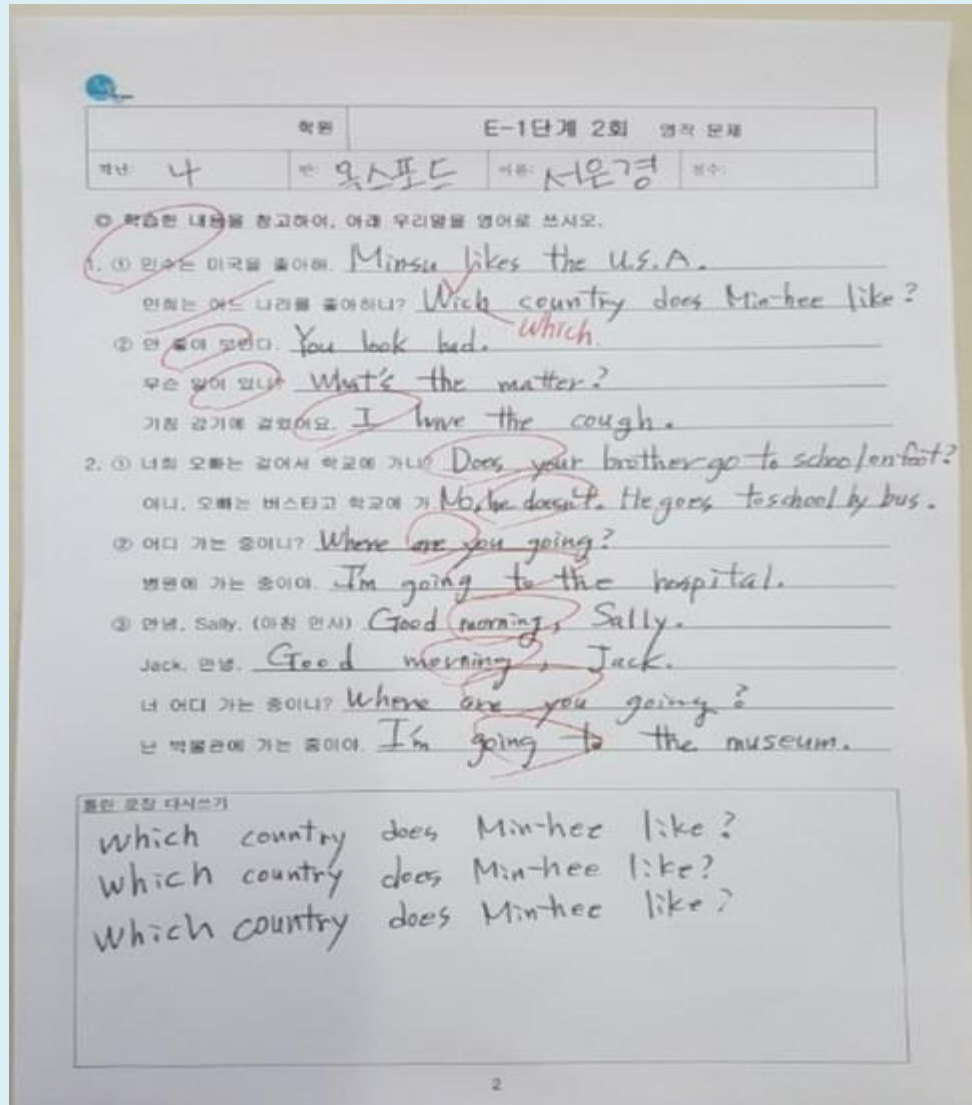 학원 E-1단계 2회 영작 문제
학년: 4 반: 옥스포드 이름: 서은경 점수:
◎ 학습한 내용을 참고하여, 아래 우리말을 영어로 쓰시오.
1. ① 민수는 미국을 좋아해. Minsu likes the U.S.A.
민희는 어느 나라를 좋아하니? Wich country does Min-hee like?
which
② 안 좋아 보인다. You look bad.
무슨 일이 있니? What's the matter?
기침 감기에 걸렸어요. I have the cough.
2. ① 너희 오빠는 걸어서 학교에 가니? Does your brother go to school on foot?
아니, 오빠는 버스타고 학교에 가 No, he doesn't. He goes to school by bus.
② 어디 가는 중이니? Where are you going?
병원에 가는 중이야. I'm going to the hospital.
③ 안녕, Sally. (아침 인사) Good morning, Sally.
Jack, 안녕. Good morning, Jack.
너 어디 가는 중이니? Where are you going?
난 박물관에 가는 중이야. I'm going to the museum.
틀린 문장 다시쓰기
which country does Min-hee like?
which country does Min-hee like?
Which country does Min-hee like?
2